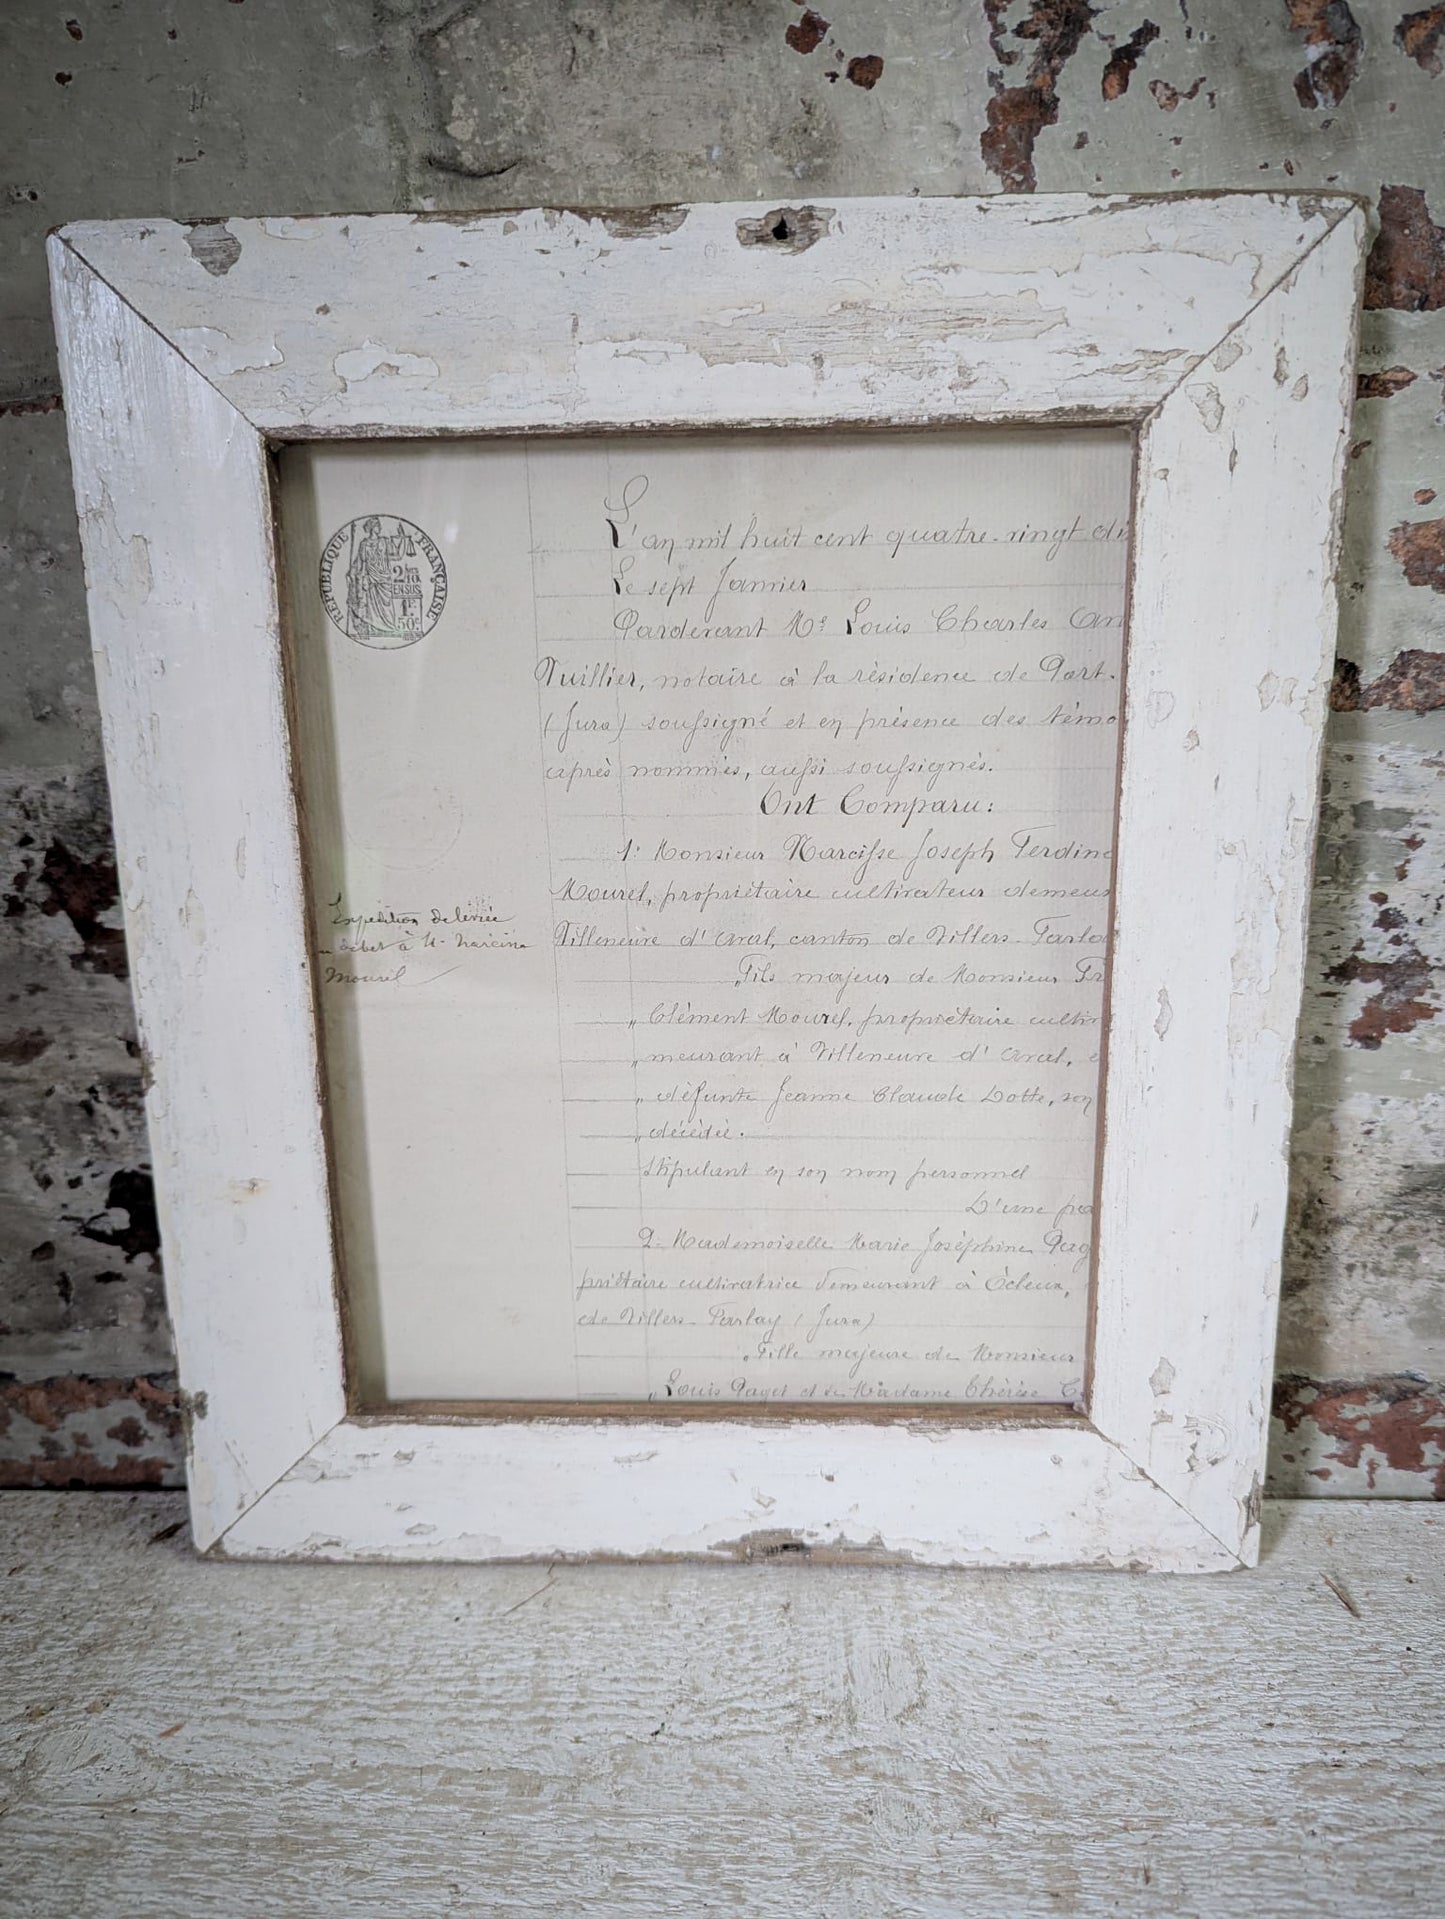 RÉPUBLIQUE FRANÇAISE
2/10
EN SUS
1F
50c
L'an mil huit cent quatre-vingt di
Le sept Janvier
Pardevant Me Louis Charles
Vuillier, notaire à la résidence de Port-
(Jura) soussigné et en présence des témo
après nommés, aussi soussignés.
Ont Comparu:
1° Monsieur Narcisse Joseph Ferdin
Mourel, propriétaire cultivateur demeu
Villeneuve d'Aval, canton de Villers-Farla
Expédition délivrée
à
Mourel
„Fils majeur de Monsieur Fr
„Clément Mourel, propriétaire culti
„meurant à Villeneuve d'Aval,
„défunte Jeanne Claude son
„décédée.
Stipulant en son nom personnel
D'une pa
2° Mademoiselle Marie Joséphine Pag
priétaire cultivatrice demeurant à Ecleux,
de Villers-Farlay (Jura)
„Fille majeure de Monsieur
„Louis Paget et de Madame Thérèse